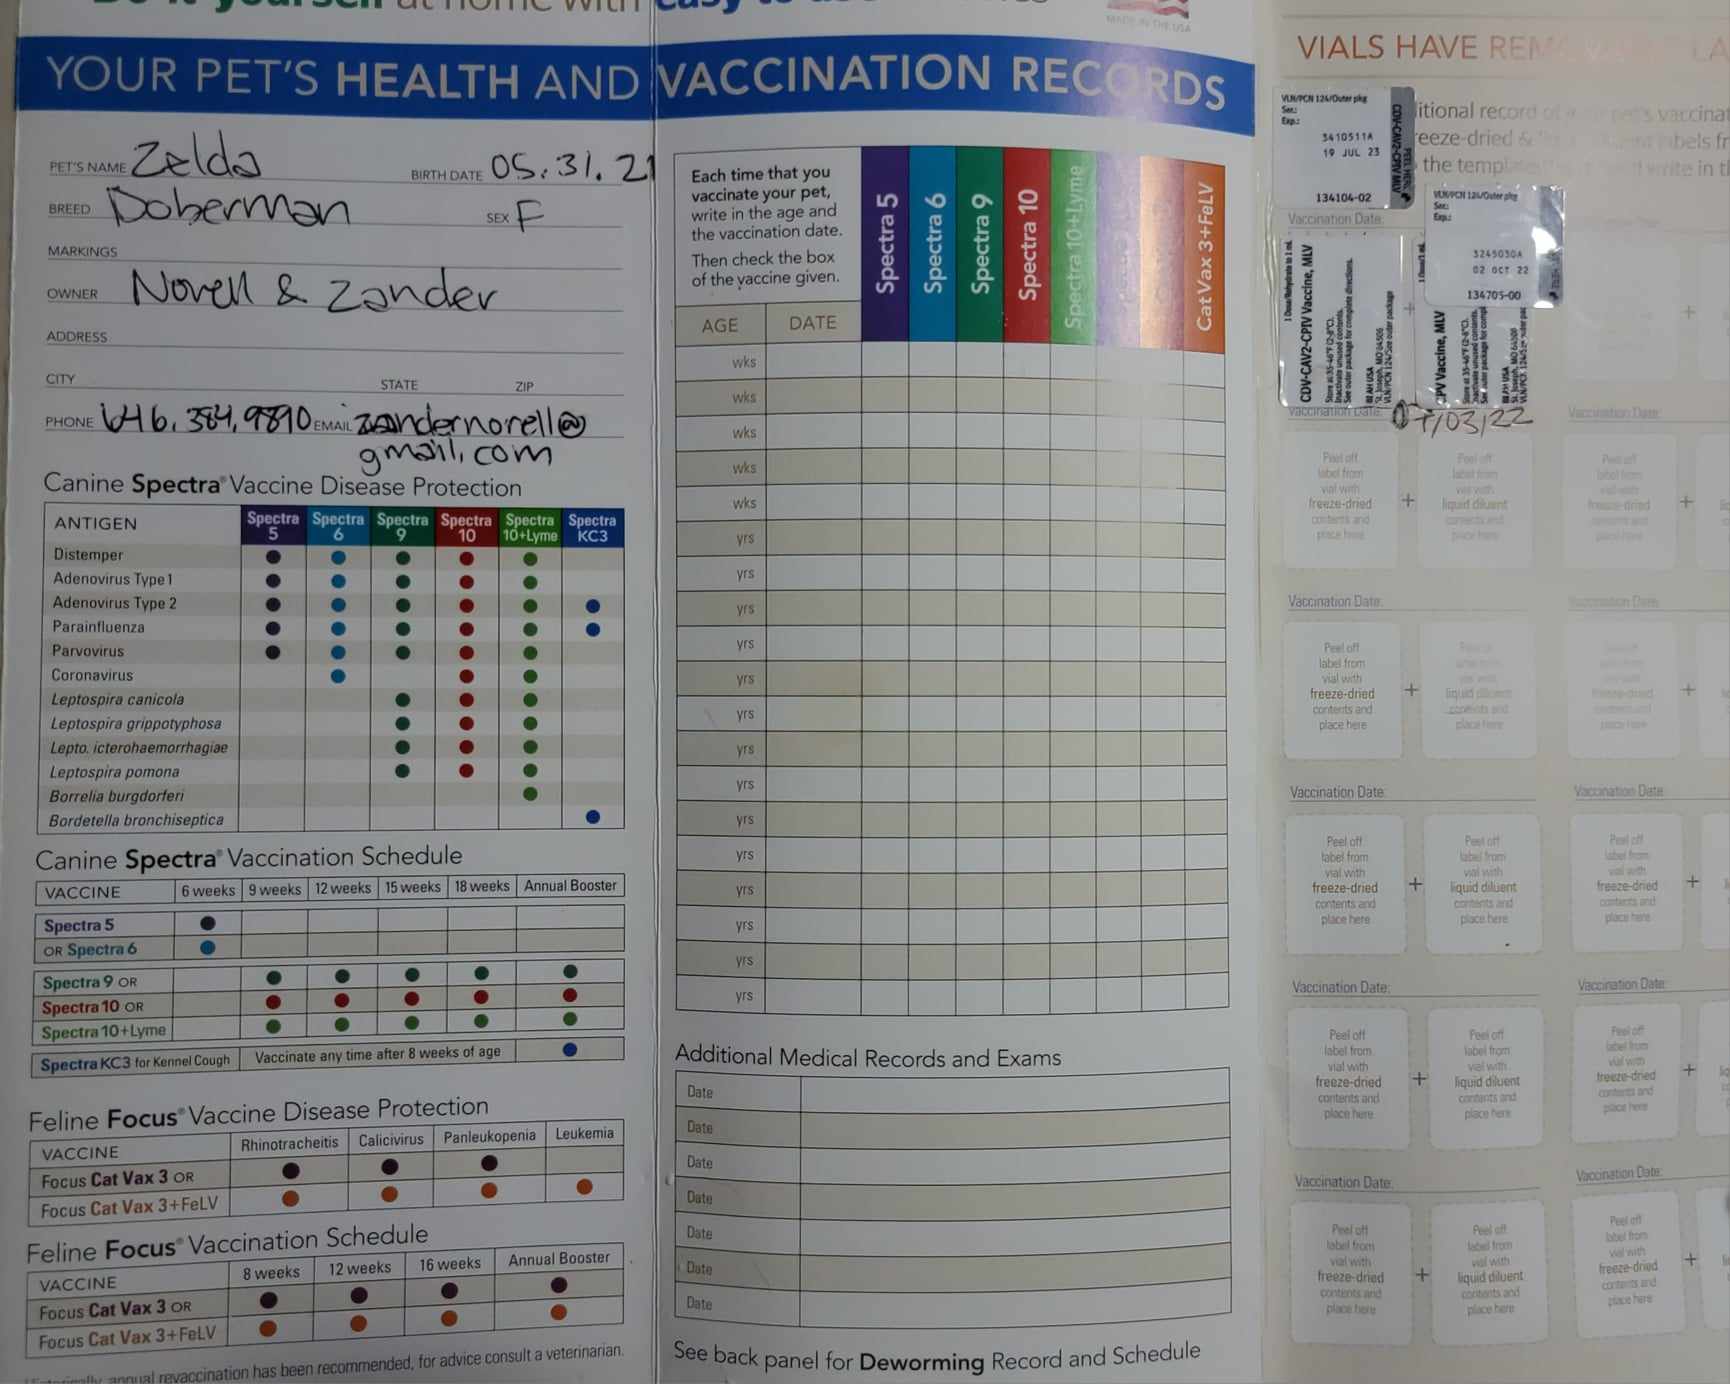 MADE IN THE USA
YOUR PET'S HEALTH AND VACCINATION RECORDS
PET'S NAME Zelda BIRTH DATE 05.31.21
BREED Doberman SEX F
MARKINGS
OWNER Norell & Zander
ADDRESS
CITY STATE ZIP
PHONE 646.384.9890 EMAIL zandernorell@
gmail.com
Canine Spectra® Vaccine Disease Protection
ANTIGEN Spectra 5 Spectra 6 Spectra 9 Spectra 10 Spectra 10+Lyme Spectra KC3
Distemper
Adenovirus Type 1
Adenovirus Type 2
Parainfluenza
Parvovirus
Coronavirus
Leptospira canicola
Leptospira grippotyphosa
Lepto. icterohaemorrhagiae
Leptospira pomona
Borrelia burgdorferi
Bordetella bronchiseptica
Canine Spectra® Vaccination Schedule
VACCINE 6 weeks 9 weeks 12 weeks 15 weeks 18 weeks Annual Booster
Spectra 5
OR Spectra 6
Spectra 9 OR
Spectra 10 OR
Spectra 10+Lyme
Spectra KC3 for Kennel Cough Vaccinate any time after 8 weeks of age
Feline Focus® Vaccine Disease Protection
VACCINE Rhinotracheitis Calicivirus Panleukopenia Leukemia
Focus Cat Vax 3 OR
Focus Cat Vax 3+FeLV
Feline Focus® Vaccination Schedule
VACCINE 8 weeks 12 weeks 16 weeks Annual Booster
Focus Cat Vax 3 OR
Focus Cat Vax 3+FeLV
annual revaccination has been recommended, for advice consult a veterinarian.
Each time that you
vaccinate your pet,
write in the age and
the vaccination date.
Then check the box
of the vaccine given.
Spectra 5 Spectra 6 Spectra 9 Spectra 10 Spectra 10+Lyme Cat Vax 3+FeLV
AGE DATE
wks
wks
wks
wks
wks
yrs
yrs
yrs
yrs
yrs
yrs
yrs
yrs
yrs
yrs
yrs
yrs
yrs
yrs
Additional Medical Records and Exams
Date
Date
Date
Date
Date
Date
Date
See back panel for Deworming Record and Schedule
VIALS HAVE
VLN/PCN 124/Outer pkg
Ser.:
Exp.:
3410511A
19 JUL 23
134104-02
CDV-CAV2-CPIV MLV
PEEL HERE
VLN/PCN 124/Outer pkg
Ser.:
Exp.:
3245030A
02 OCT 22
134705-00
Vaccination Date:
1 Dose/Rehydrate to 1 mL
CDV-CAV2-CPIV Vaccine, MLV
Store at 35-46°F (2-8°C).
Inactivate unused contents.
See outer package for complete directions.
BI AH USA
St. Joseph, MO 64506
VLN/PCN 124/See outer package
CPV Vaccine, MLV
Vaccination Date: 07/03/22
Vaccination Date:
Peel off label from vial with freeze-dried contents and place here + Peel off label from vial with liquid diluent contents and place here
Peel off label from vial with freeze-dried contents and place here +
Vaccination Date: Vaccination Date:
Peel off label from vial with freeze-dried contents and place here + Peel off label from vial with liquid diluent contents and place here
Peel off label from vial with freeze-dried contents and place here +
Vaccination Date: Vaccination Date:
Peel off label from vial with freeze-dried contents and place here + Peel off label from vial with liquid diluent contents and place here
Peel off label from vial with freeze-dried contents and place here +
Vaccination Date: Vaccination Date:
Peel off label from vial with freeze-dried contents and place here + Peel off label from vial with liquid diluent contents and place here
Peel off label from vial with freeze-dried contents and place here +
Vaccination Date: Vaccination Date:
Peel off label from vial with freeze-dried contents and place here + Peel off label from vial with liquid diluent contents and place here
Peel off label from vial with freeze-dried contents and place here +